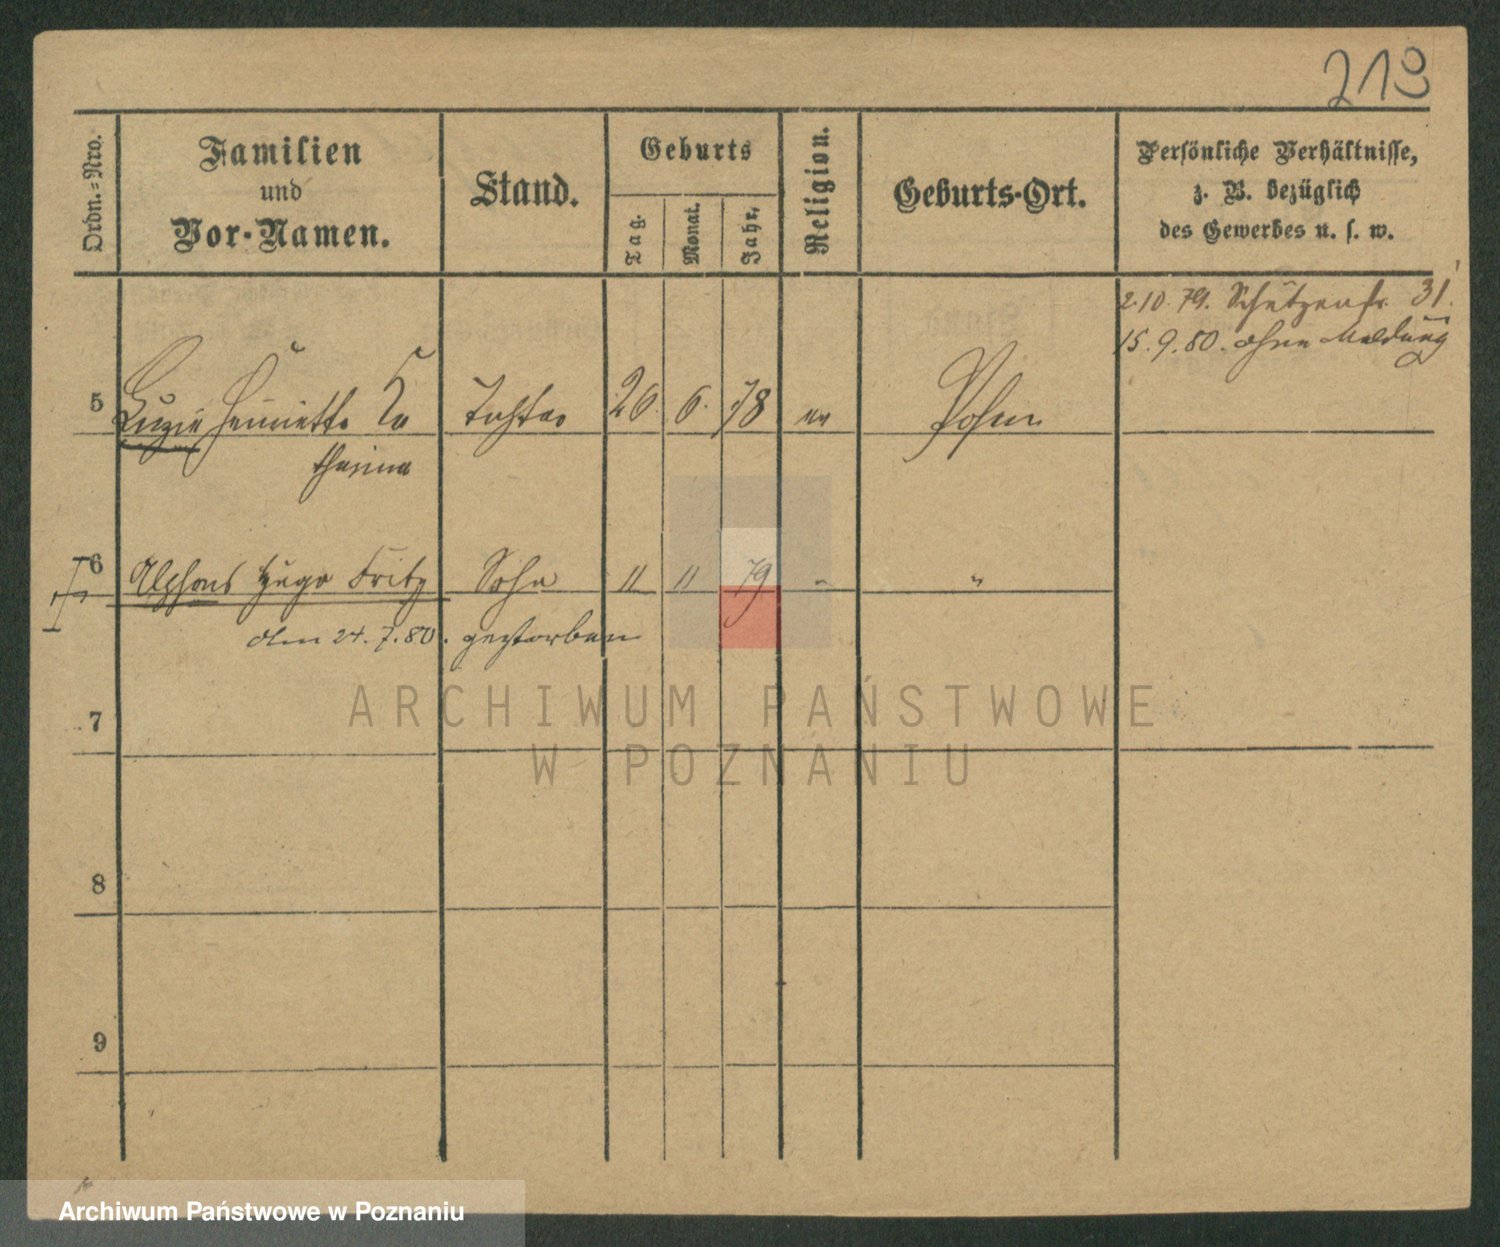 213
Ordn.=Nro.
Familien
und
Vor-Namen.
Stand.
Geburts
Tag.
Monat.
Jahr.
Religion.
Geburts-Ort.
Persönliche Verhältnisse,
z. B. bezüglich
des Gewerbes u. s. w.
2.10.79. Schützenstr. 31.
15.9.80. ohne Meldung
5 Luzie Henriette Ka Tochter 26. 6. 78 ev Posen
tharina
6 Alphons Hugo Fritz Sohn 11 11 79 " "
Am 24.7.80. gestorben
7
8
9
ARCHIWUM PAŃSTWOWE
W POZNANIU
Archiwum Państwowe w Poznaniu